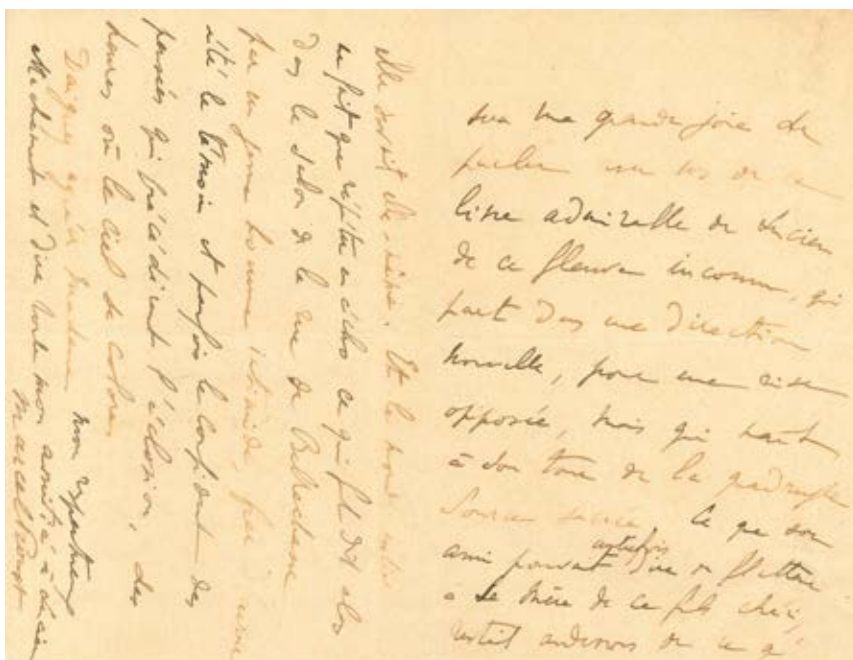 sera ma grande joie de
parler un jour de ce
livre admirable de Lucien
de ce fleuve inconnu, qui
part dans une direction
nouvelle, pour une rive
opposée, mais qui naît
à son tour de la quadruple
source sacrée. Ce que son
ami pouvait autrefois dire en flatterie
à la mère de ce fils chéri,
restait au dessous de ce qu'
elle méritait. Et le monde entier
ne fait que répéter en écho ce qui fut dit alors
dans le salon de la rue de Bellechasse
par un jeune homme intimidé, fier d'avoir
été le témoin et parfois le confident des
pensées qui précédèrent l'éclosion, des
heures où le ciel se colore.
Daignez agréer Madame mon respectueux
attachement et dire toute mon amitié à Lucien
Marcel Proust